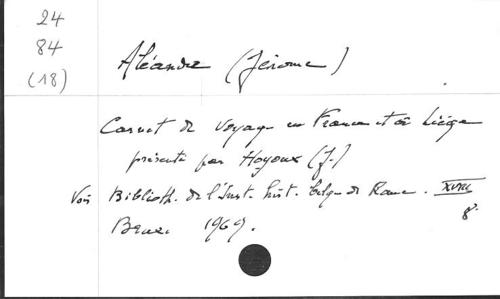 24
84
(18)
Aléandre (Jérome)
Carnet de voyage en France et à Liège
présenté par Hoyoux (J.)
Voir Biblioth. de l'Inst. hist. belge de Rome. XVIII
8°.
Brux. 1969.